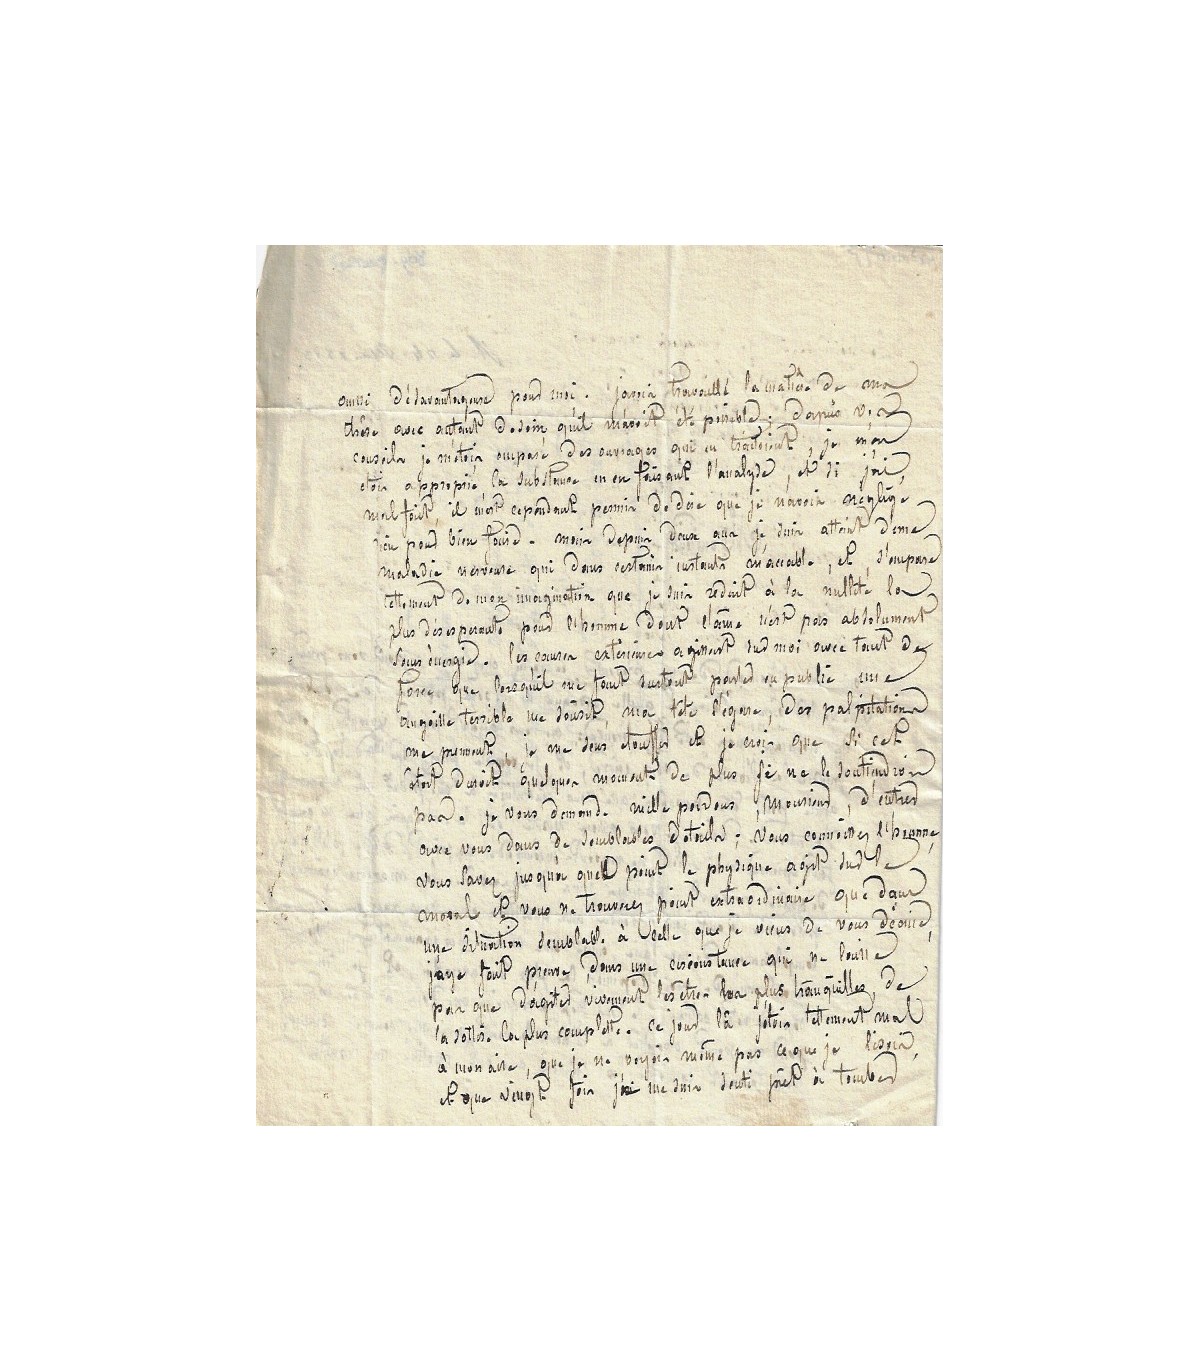 aussi désavantageuse pour moi. javois travaillé la matière de ma
thèse avec autant de soin qu'il m'avoit été possible; daprès vos
conseils je m'étois emparé des ouvrages qui en traitoient, je m'en
étois approprié la substance en en faisant l'analyse, et si j'ai
mal fait, il m'est cependant permis de dire que je n'avois négligé
rien pour bien faire. mais depuis deux ans je suis atteint d'une
maladie nerveuse qui dans certains instants m'accable, et s'empare
tellement de mon imagination que je suis réduit à la nullité la
plus désesperante pour l'homme dont l'âme n'est pas absolument
sans énergie. les causes extérieures agissent sur moi avec tant de
force que lorsqu'il me faut surtout parler en public une
angoisse terrible me saisit, ma tête s'égare, des palpitations
me prennent, je me sens etouffer et je crois que si cet
état duroit quelques moments de plus je ne le soutiendrois
pas. je vous demande mille pardons, monsieur, d'entrer
avec vous dans de semblables détails; vous connoissez l'homme,
vous savez jusqu'à quel point le physique agit sur le
moral et vous ne trouverez point extraordinaire que dans
une situation semblable à celle que je viens de vous décrire,
j'aye fait preuve, dans une circonstance qui ne laisse
pas que d'agiter vivement les êtres les plus tranquilles, de
la sottise la plus complette. ce jour là j'étois tellement mal
à mon aise, que je ne voyois même pas ce que je lisois,
et que vingt fois je me suis senti prêt à tomber